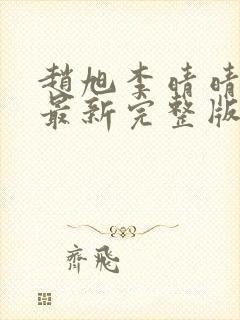 趙旭李晴晴
最新完整版
齊飛